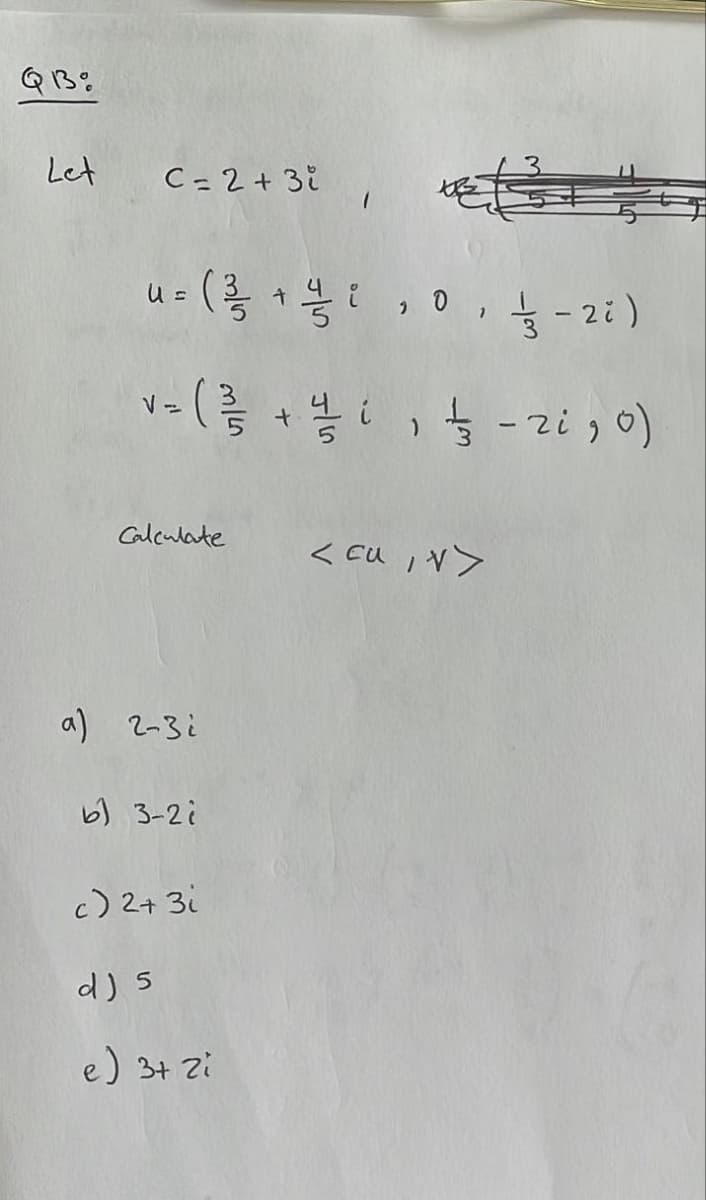 QB:
Let C = 2 + 3i ,
u = (3/5 + 4/5 i , 0 , 1/3 - 2i)
v = (3/5 + 4/5 i , 1/3 - 2i , 0)
Calculate < cu , v >
a) 2-3i
b) 3-2i
c) 2+3i
d) 5
e) 3+2i